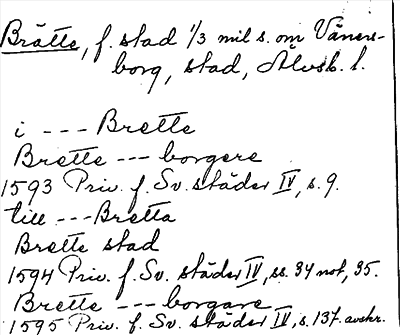 Brätte, f. stad 1/3 mil s. om Väners-
borg, stad, Älvsb. l.
i --- Brette
Brette --- borgere
1593 Priv. f. Sv. städer IV, s. 9.
till --- Bretta
Brette stad
1594 Priv. f. Sv. städer IV, ss. 34 not, 35.
Brette --- borgare
1595 Priv. f. Sv. städer IV, s. 137. avskr.